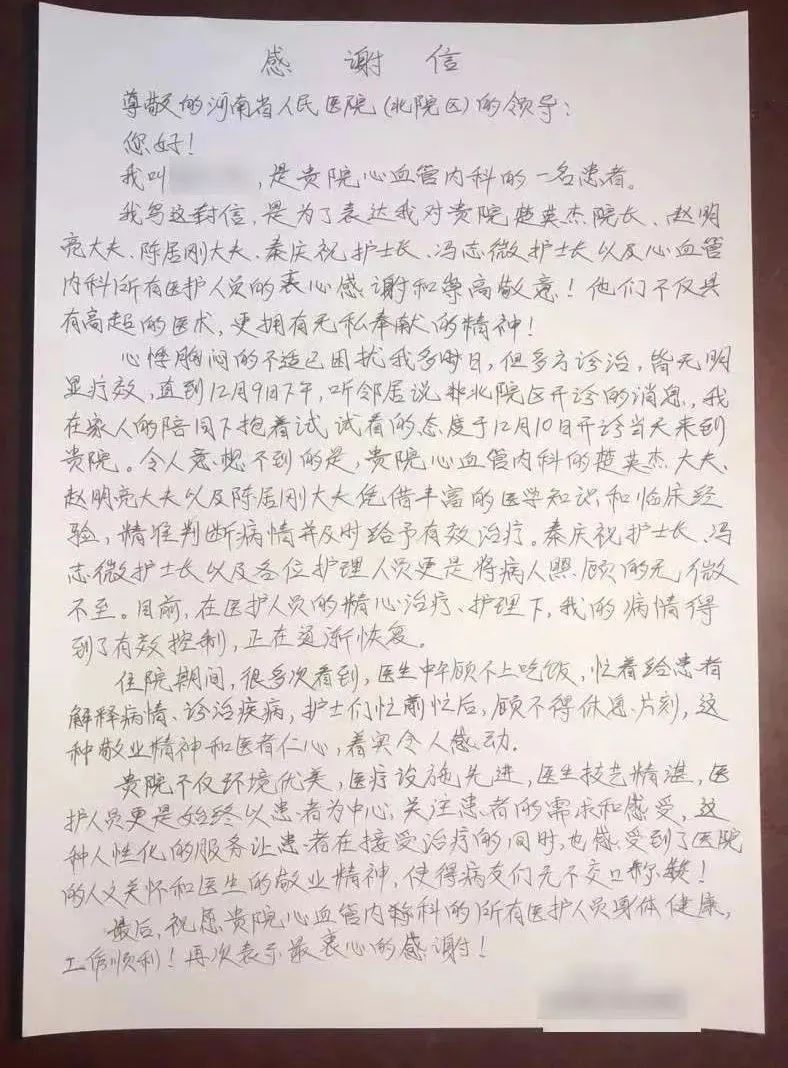 感谢信
尊敬的河南省人民医院(北院区)的领导:
您好!
我叫,是贵院心血管内科的一名患者。
我写这封信,是为了表达我对贵院楚英杰院长、赵明
亮大夫、陈居刚大夫、秦庆祝护士长、冯志微护士长以及心血管
内科所有医护人员的衷心感谢和崇高敬意!他们不仅具
有高超的医术,更拥有无私奉献的精神!
心悸胸闷的不适已困扰我多时日,但多方诊治,皆无明
显疗效,直到12月9日下午,听邻居说起北院区开诊的消息,我
在家人的陪同下抱着试试看的态度于12月10日开诊当天来到
贵院。令人意想不到的是,贵院心血管内科的楚英杰大夫、
赵明亮大夫以及陈居刚大夫凭借丰富的医学知识和临床经
验,精准判断病情并及时给予有效治疗。秦庆祝护士长、冯
志微护士长以及各位护理人员更是将病人照顾的无微
不至。目前,在医护人员的精心治疗、护理下,我的病情得
到了有效控制,正在逐渐恢复。
住院期间,很多次看到,医生中午顾不上吃饭,忙着给患者
解释病情、诊治疾病,护士们忙前忙后,顾不得休息片刻,这
种敬业精神和医者仁心,着实令人感动.
贵院不仅环境优美,医疗设施先进,医生技艺精湛,医
护人员更是始终以患者为中心,关注患者的需求和感受,这
种人性化的服务让患者在接受治疗的同时,也感受到了医院
的人文关怀和医生的敬业精神,使得病友们无不交口称赞!
最后,祝愿贵院心血管内科的所有医护人员身体健康,
工作顺利!再次表示最衷心的感谢!